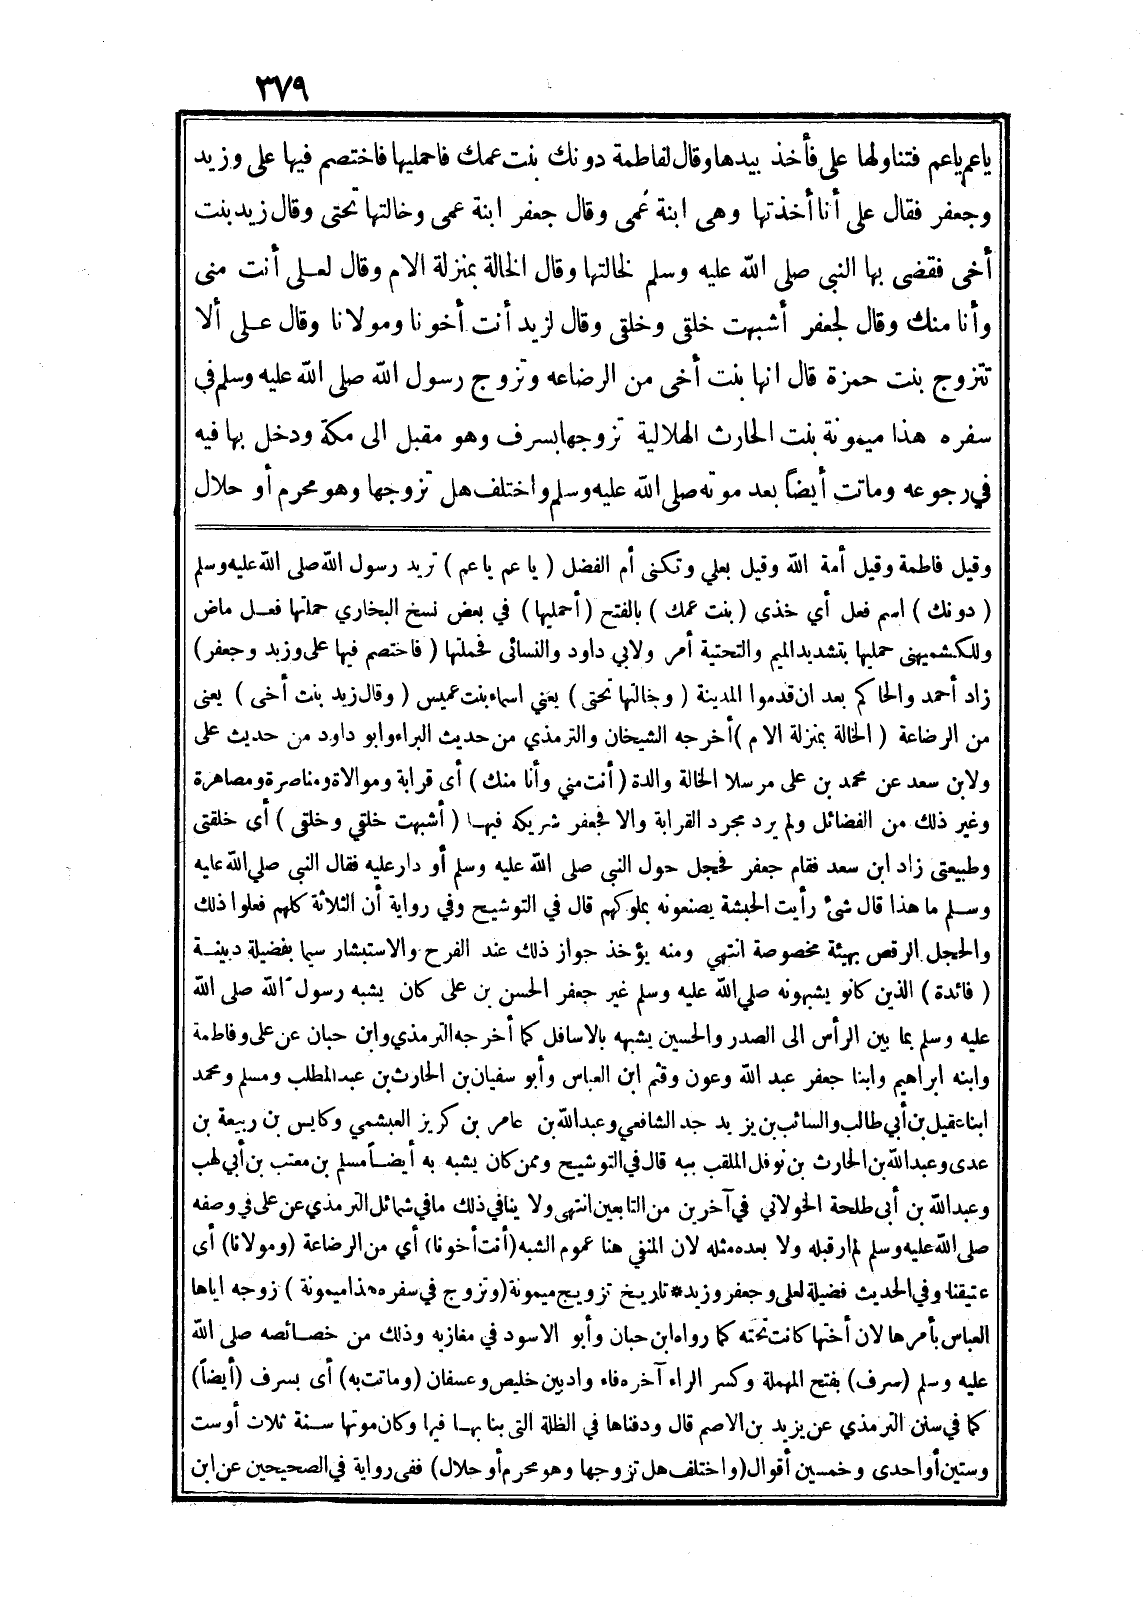 ٣٧٩
ياعم ياعم فتناولها على فأخذ بيدها وقال لفاطمة دونك بنت عمك فاحمليها فاختصم فيها على وزيد
وجعفر فقال على أنا أخذتها وهى ابنة عمى وقال جعفر ابنة عمى وخالتها تحتى وقال زيد بنت
أخى فقضى بها النبى صلى الله عليه وسلم لخالتها وقال الخالة بمنزلة الام وقال لعلى أنت منى
وأنا منك وقال لجعفر أشبهت خلقى وخلقى وقال لزيد أنت أخونا ومولانا وقال على ألا
تتزوج بنت حمزة قال انها بنت أخى من الرضاعه وتزوج رسول الله صلى الله عليه وسلم في
سفره هذا ميمونة بنت الحارث الهلالية تزوجها بسرف وهو مقبل الى مكة ودخل بها فيه
في رجوعه وماتت أيضاً بعد موته صلى الله عليه وسلم واختلف هل تزوجها وهو محرم أو حلال
وقيل فاطمة وقيل أمة الله وقيل يعلي وتكنى أم الفضل ( يا عم يا عم ) تريد رسول الله صلى الله عليه وسلم
( دونك ) اسم فعل أي خذى ( بنت عمك ) بالفتح ( أحمليها ) في بعض نسخ البخاري حملتها فعل ماض
وللكشميهنى حمليها بتشديد الميم والتحتية أمر ولابي داود والنسائى فحملتها ( فاختصم فيها على وزيد وجعفر )
زاد أحمد والحاكم بعد ان قدموا المدينة ( وخالتها تحتى ) يعني اسماء بنت عميس ( وقال زيد بنت أخى ) يعنى
من الرضاعة ( الخالة بمنزلة الام ) أخرجه الشيخان والترمذي من حديث البراء وابو داود من حديث على
ولابن سعد عن محمد بن على مرسلا الخالة والدة ( أنت مني وأنا منك ) أى قرابة وموالاة ومناصرة ومصاهرة
وغير ذلك من الفضائل ولم يرد مجرد القرابة والا فجعفر شريكه فيها ( أشبهت خلقي وخلقى ) أى خلقتى
وطبيعتى زاد ابن سعد فقام جعفر فحجل حول النبى صلى الله عليه وسلم أو دار عليه فقال النبي صلى الله عليه
وسلم ما هذا قال شئ رأيت الحبشة يصنعونه بملوكهم قال في التوشيح وفي رواية أن الثلاثة كلهم فعلوا ذلك
والحجل الرقص بهيئة مخصوصة انتهي ومنه يؤخذ جواز ذلك عند الفرح والاستبشار سيما بفضيلة دينية
( فائدة ) الذين كانو يشبهونه صلي الله عليه وسلم غير جعفر الحسن بن على كان يشبه رسول الله صلى الله
عليه وسلم بما بين الرأس الى الصدر والحسين يشبهه بالاسافل كما أخرجه الترمذي وابن حبان عن على وفاطمة
وابنه ابراهيم وابنا جعفر عبد الله وعون وقثم ابن العباس وأبو سفيان بن الحارث بن عبد المطلب ومسلم ومحمد
ابنا عقيل بن أبي طالب والسائب بن يزيد جد الشافعي وعبد الله بن عامر بن كريز العبشمي وكابس بن ربيعة بن
عدى وعبد الله بن الحارث بن نوفل الملقب ببه قال في التوشيح وممن كان يشبه به أيضاً مسلم بن معتب بن أبي لهب
وعبد الله بن أبى طلحة الخولاني في آخرين من التابعين انتهى ولا ينافي ذلك ما في شمائل الترمذي عن على في وصفه
صلى الله عليه وسلم لم ار قبله ولا بعده مثله لان المنفي هنا عموم الشبه (أنت أخونا) أي من الرضاعة (ومولانا) أى
عتيقنا وفي الحديث فضيلة لعلى وجعفر وزيد * تاريخ تزويج ميمونة (وتزوج في سفره هذا ميمونة ) زوجه اياها
العباس بأمرها لان أختها كانت تحته كما رواه ابن حبان وأبو الاسود في مغازيه وذلك من خصائصه صلى الله
عليه وسلم (سرف) بفتح المهملة وكسر الراء آخره فاء وادبين خليص وعسفان (وماتت به) أى بسرف (أيضاً)
كما في سنن الترمذي عن يزيد بن الاصم قال ودفناها في الظلة التى بنا بها فيها وكان موتها سنة ثلاث أوست
وستين أو احدى وخمسين أقوال (واختلف هل تزوجها وهو محرم أو حلال) ففى رواية في الصحيحين عن ابن